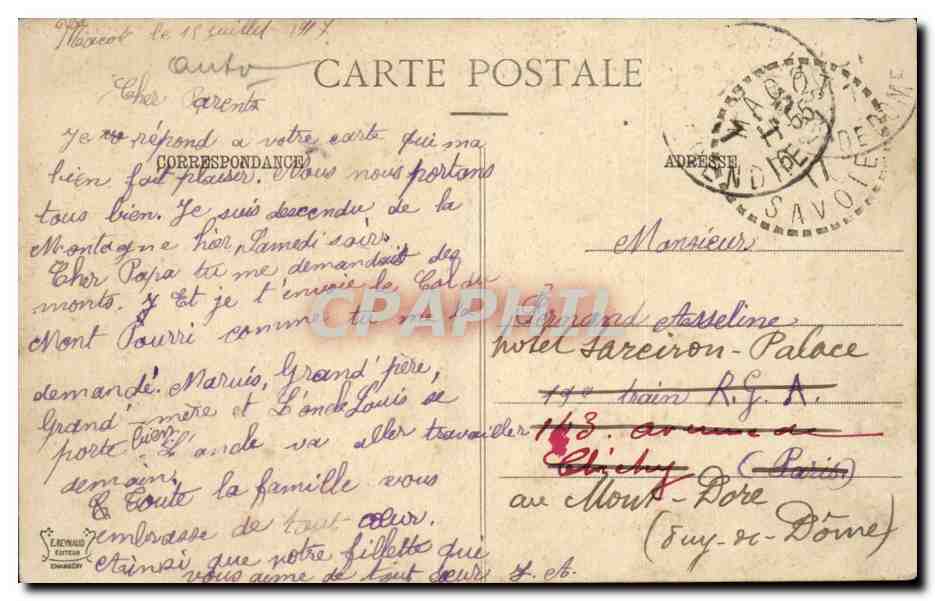 Macot le 15 juillet 1917
auto
CARTE POSTALE
Cher Parents
CORRESPONDANCE
Je répond a votre carte qui ma
bien fait plaiser. Nous nous portons
tous bien. Je suis descendu de la
Montagne hier Samedi soir.
Cher Papa tu me demandait des
monts. Et je t'envoie le Col du
Mont Pourri comme tu me le
demandé. Maruis, Grand père,
Grand mère et L'oncle Louis se
porte bien. L'oncle va aller travailler
demain.
Toute la famille vous
embrasse de tout cœur.
Ainsi que notre fillette qui
vous aime de tout cœur J. A.
E. REYNAUD
EDITEUR
CHAMBERY
ADRESSE
MACOT
SAVOIE
Monsieur
Fernand Asseline
hotel Sarciron-Palace
19e train R.G.A.
143. avenue de
Clichy (Paris)
au Mont-Dore
(Puy-de-Dôme)
CPAPHIL